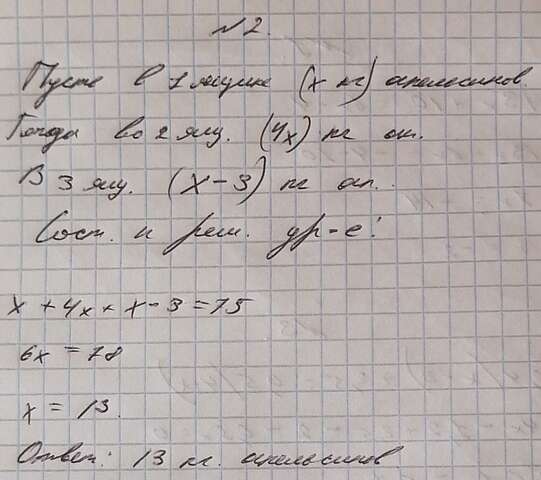 №2.
Пусть в 1 ящике (x кг) апельсинов.
Тогда во 2 ящ. (4x) кг ап.
В 3 ящ. (x-3) кг ап.
Сост. и реш. ур-е:
x + 4x + x - 3 = 75
6x = 78
x = 13.
Ответ: 13 кг. апельсинов.